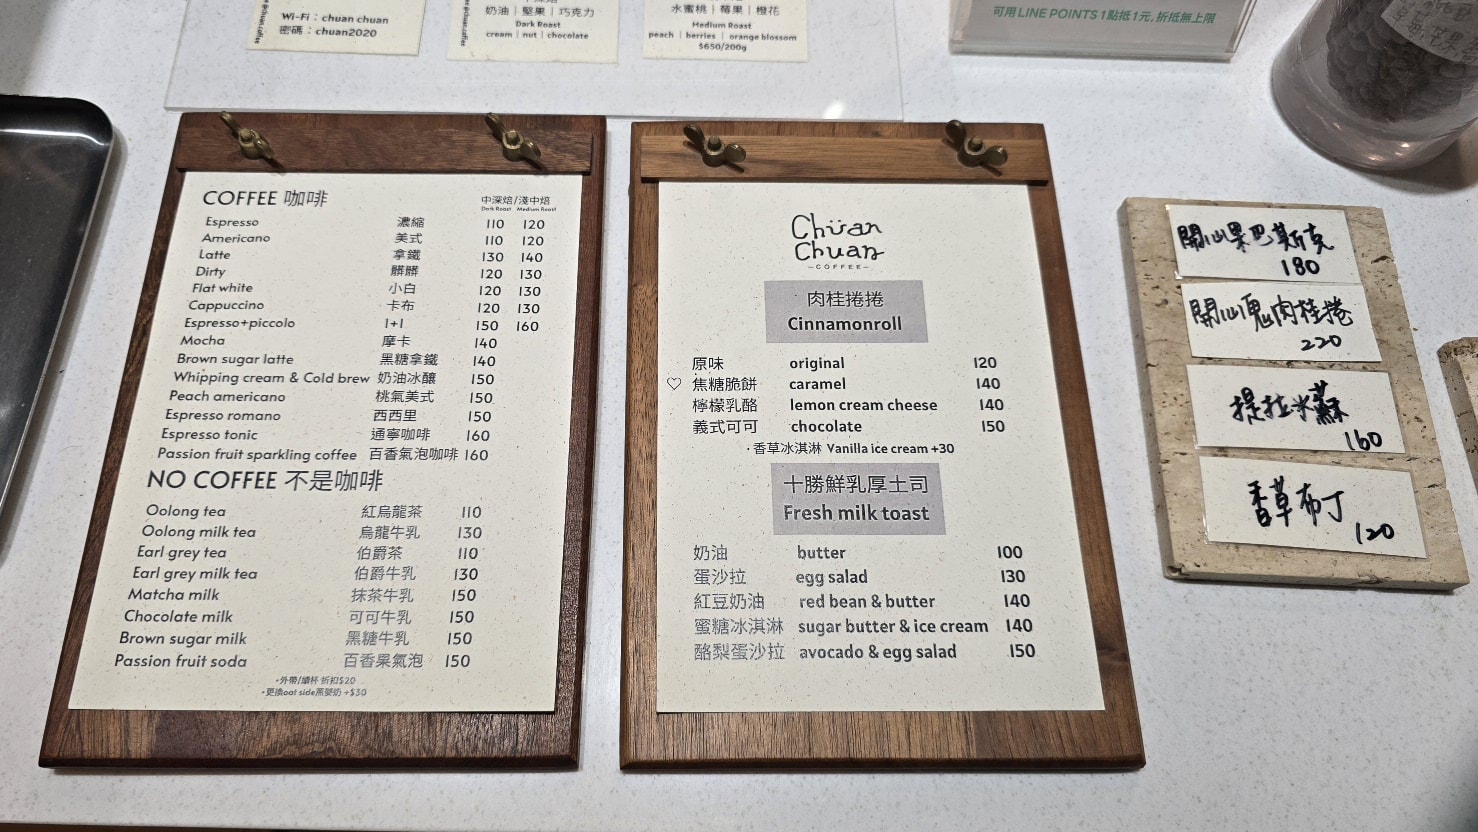 Wi-Fi：chuan chuan
密碼：chuan2020
奶油｜堅果｜巧克力
Dark Roast
cream | nut | chocolate
水蜜桃｜莓果｜橙花
Medium Roast
peach | berries | orange blossom
$650/200g
可用 LINE POINTS 1點抵1元, 折抵無上限
COFFEE 咖啡
中深焙/淺中焙
Dark Roast Medium Roast
Espresso 濃縮 110 120
Americano 美式 110 120
Latte 拿鐵 130 140
Dirty 髒髒 120 130
Flat white 小白 120 130
Cappuccino 卡布 120 130
Espresso+piccolo 1+1 150 160
Mocha 摩卡 140
Brown sugar latte 黑糖拿鐵 140
Whipping cream & Cold brew 奶油冰釀 150
Peach americano 桃氣美式 150
Espresso romano 西西里 150
Espresso tonic 通寧咖啡 160
Passion fruit sparkling coffee 百香氣泡咖啡 160
NO COFFEE 不是咖啡
Oolong tea 紅烏龍茶 110
Oolong milk tea 烏龍牛乳 130
Earl grey tea 伯爵茶 110
Earl grey milk tea 伯爵牛乳 130
Matcha milk 抹茶牛乳 150
Chocolate milk 可可牛乳 150
Brown sugar milk 黑糖牛乳 150
Passion fruit soda 百香果氣泡 150
•外帶/續杯 折扣$20
•更換oat side燕麥奶 +$30
Chuan
Chuan
—COFFEE—
肉桂捲捲
Cinnamonroll
原味 original 120
♡ 焦糖脆餅 caramel 140
檸檬乳酪 lemon cream cheese 140
義式可可 chocolate 150
·香草冰淇淋 Vanilla ice cream +30
十勝鮮乳厚土司
Fresh milk toast
奶油 butter 100
蛋沙拉 egg salad 130
紅豆奶油 red bean & butter 140
蜜糖冰淇淋 sugar butter & ice cream 140
酪梨蛋沙拉 avocado & egg salad 150
開心果巴斯克
180
開心果肉桂捲
220
提拉米蘇
160
香草布丁
120